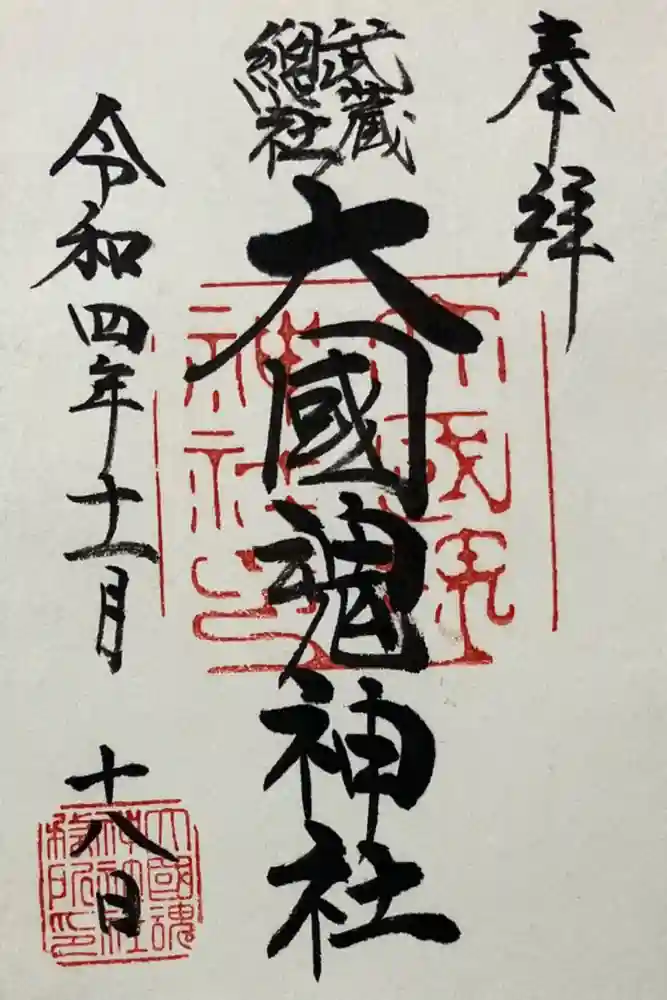 奉拝
武蔵
總社
大國魂神社
令和四年十一月十八日
大國魂
神社印
大國魂
神社
務所印